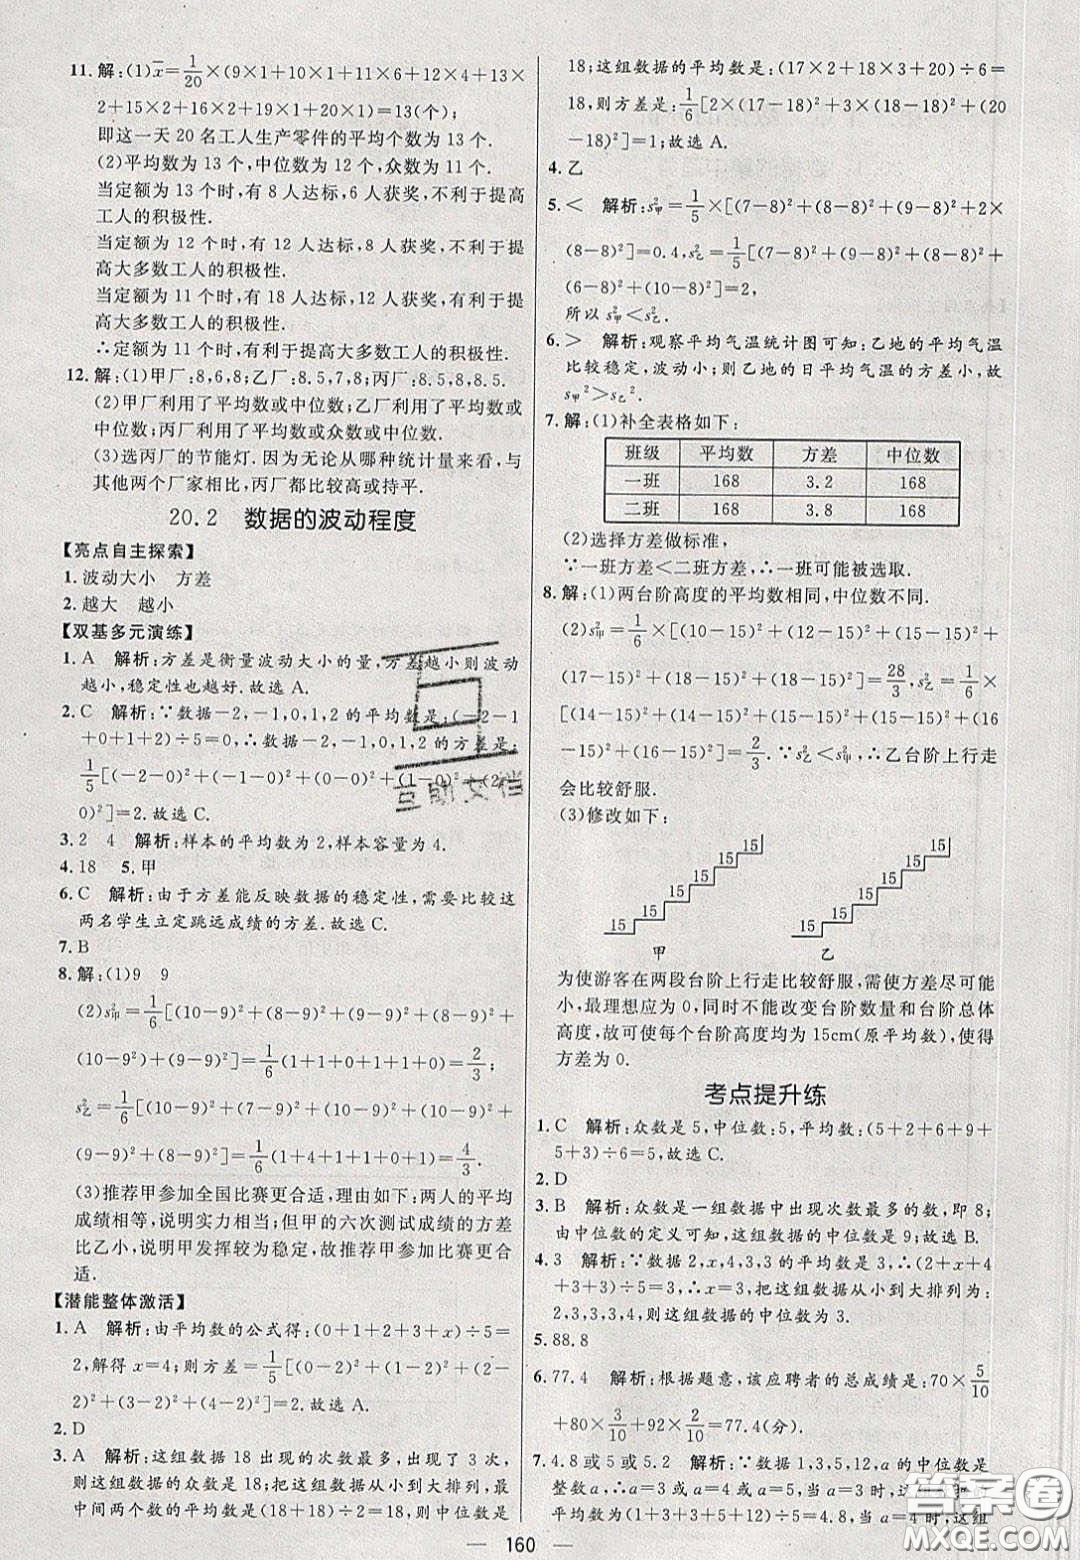 11. 解:(1)x̄=1/20×(9×1+10×1+11×6+12×4+13×
2+15×2+16×2+19×1+20×1)=13(个);
即这一天20名工人生产零件的平均个数为13个.
(2)平均数为13个,中位数为12个,众数为11个.
当定额为13个时,有8人达标,6人获奖,不利于提高
工人的积极性.
当定额为12个时,有12人达标,8人获奖,不利于提
高大多数工人的积极性.
当定额为11个时,有18人达标,12人获奖,有利于提
高大多数工人的积极性.
∴定额为11个时,有利于提高大多数工人的积极性.
12. 解:(1)甲厂:8,6,8;乙厂:8.5,7,8;丙厂:8.5,8,8.5.
(2)甲厂利用了平均数或中位数;乙厂利用了平均数或
中位数;丙厂利用了平均数或众数或中位数.
(3)选丙厂的节能灯.因为无论从哪种统计量来看,与
其他两个厂家相比,丙厂都比较高或持平.
20.2 数据的波动程度
【亮点自主探索】
1. 波动大小 方差
2. 越大 越小
【双基多元演练】
1. A 解析:方差是衡量波动大小的量,方差越小则波动
越小,稳定性也越好.故选A.
2. C 解析:∵数据-2,-1,0,1,2的平均数是:(-2-1
+0+1+2)÷5=0;∴数据-2,-1,0,1,2的方差是:
1/5[(-2-0)²+(-1-0)²+(0-0)²+(1-0)²+(2-
0)²]=2.故选C.
3. 2 4 解析:样本的平均数为2,样本容量为4.
4. 18 5. 甲
6. C 解析:由于方差能反映数据的稳定性,需要比较这
两名学生立定跳远成绩的方差.故选C.
7. B
8. 解:(1)9 9
(2)s²甲=1/6[(10-9)²+(8-9)²+(9-9)²+(8-9)²+
(10-9)²+(9-9)²]=1/6(1+1+0+1+1+0)=2/3;
s²乙=1/6[(10-9)²+(7-9)²+(10-9)²+(10-9)²+
(9-9)²+(8-9)²]=1/6(1+4+1+1+0+1)=4/3.
(3)推荐甲参加全国比赛更合适,理由如下:两人的平均
成绩相等,说明实力相当;但甲的六次测试成绩的方差
比乙小,说明甲发挥较为稳定,故推荐甲参加比赛更合
适.
【潜能整体激活】
1. A 解析:由平均数的公式得:(0+1+2+3+x)÷5=
2,解得x=4;则方差=1/5[(0-2)²+(1-2)²+(2-
2)²+(3-2)²+(4-2)²]=2.故选A.
2. D
3. A 解析:这组数据18出现的次数最多,出现了3次,
则这组数据的众数是18;把这组数据从小到大排列,最
中间两个数的平均数是(18+18)÷2=18,则中位数是
18;这组数据的平均数是:(17×2+18×3+20)÷6=
18,则方差是:1/6[2×(17-18)²+3×(18-18)²+(20
-18)²]=1;故选A.
4. 乙
5. < 解析:s²甲=1/5×[(7-8)²+(8-8)²+(9-8)²+2×
(8-8)²]=0.4,s²乙=1/5[(7-8)²+(9-8)²+(8-8)²+
(6-8)²+(10-8)²]=2,
所以s²甲<s²乙.
6. > 解析:观察平均气温统计图可知:乙地的平均气温
比较稳定,波动小;则乙地的日平均气温的方差小,故
s甲²>s乙².
7. 解:(1)补全表格如下:
班级 平均数 方差 中位数
一班 168 3.2 168
二班 168 3.8 168
(2)选择方差做标准,
∵一班方差<二班方差,∴一班可能被选取.
8. 解:(1)两台阶高度的平均数相同,中位数不同.
(2)s²甲=1/6×[(10-15)²+(12-15)²+(15-15)²+
(17-15)²+(18-15)²+(18-15)²]=28/3,s²乙=1/6×
[(14-15)²+(14-15)²+(15-15)²+(15-15)²+(16
-15)²+(16-15)²]=2/3.∵s²乙<s²甲,∴乙台阶上行走
会比较舒服.
(3)修改如下:
15 15 15 15 15 15
15 15 15 15 15 15
甲 乙
为使游客在两段台阶上行走比较舒服,需使方差尽可能
小,最理想应为0,同时不能改变台阶数量和台阶总体
高度,故可使每个台阶高度均为15cm(原平均数),使得
方差为0.
考点提升练
1. C 解析:众数是5,中位数:5,平均数:(5+2+6+9+
5+3)÷6=5,故选C.
2. D
3. B 解析:众数是一组数据中出现次数最多的数,即8;
由中位数的定义可知,这组数据的中位数是9;故选B.
4. 3 解析:∵数据2,x,4,3,3的平均数是3,∴(2+x+4
+3+3)÷5=3,∴x=3,把这组数据从小到大排列为:
2,3,3,3,4,则这组数据的中位数为3.
5. 88.8
6. 77.4 解析:根据题意,该应聘者的总成绩是:70×5/10
+80×3/10+92×2/10=77.4(分)
7. 4.8或5或5.2 解析:∵数据1,3,5,12,a的中位数是
整数a,∴a=3或a=4或a=5,当a=3时,这组数据的
平均数为(1+3+3+5+12)÷5=4.8,当a=4时,这组
160
互助文档
答案卷
MXQE.COM